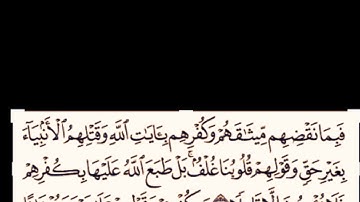 فَبِمَا نَقْضِهِم مِّيثَٰقَهُمْ وَكُفْرِهِم بِـَٔايَٰتِ ٱللَّهِ وَقَتْلِهِمُ ٱلْأَنۢبِيَآءَ
بِغَيْرِ حَقٍّ وَقَوْلِهِمْ قُلُوبُنَا غُلْفٌۢ ۚ بَلْ طَبَعَ ٱللَّهُ عَلَيْهَا بِكُفْرِهِمْ